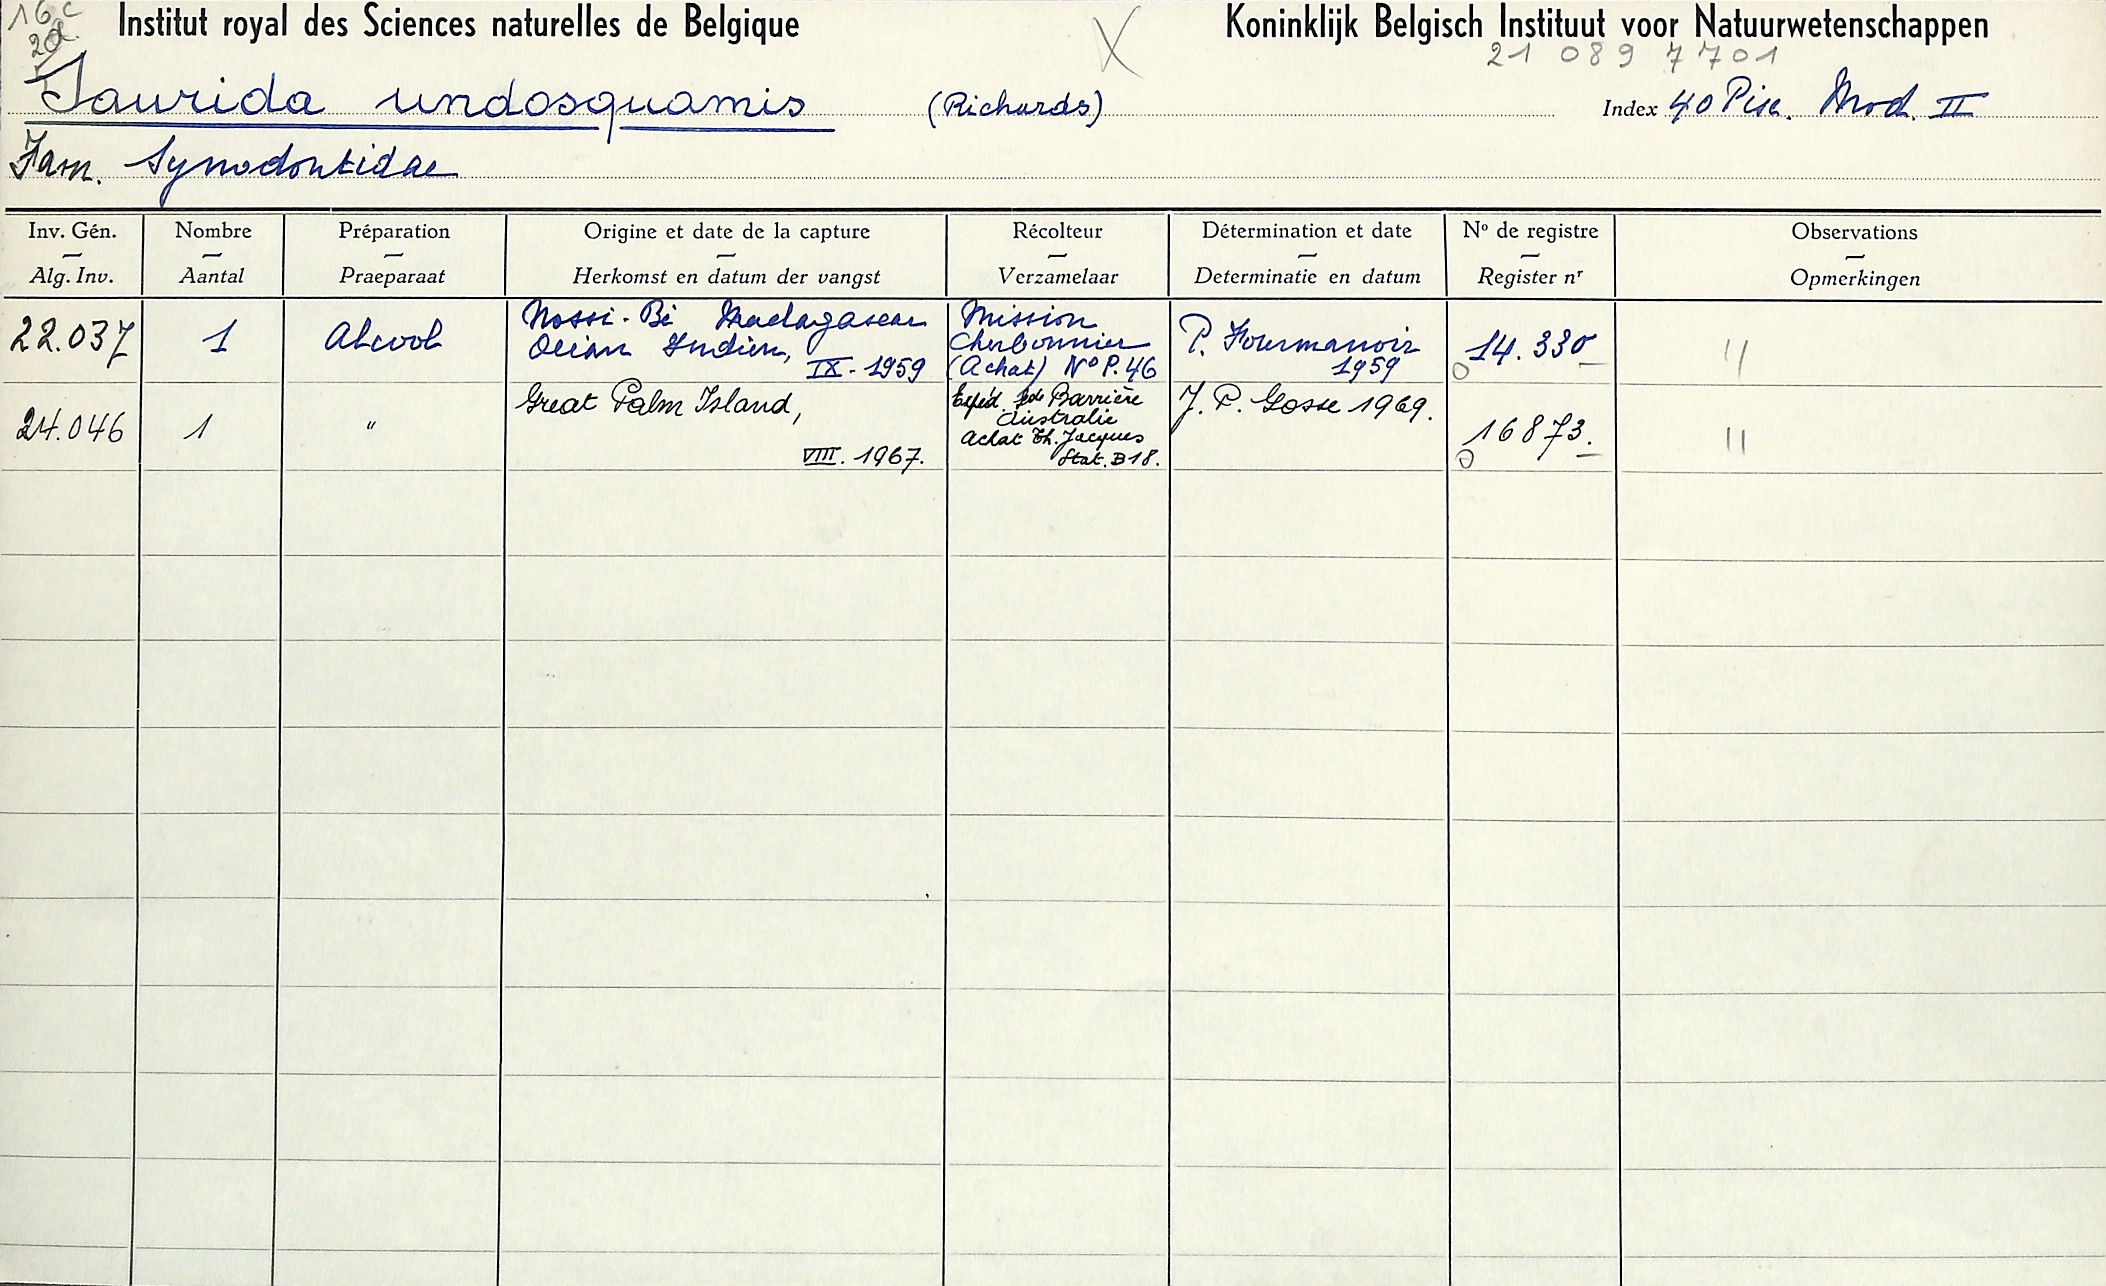 16c
2d
Institut royal des Sciences naturelles de Belgique
Koninklijk Belgisch Instituut voor Natuurwetenschappen
21 089 7701
Saurida undosquamis (Richards) Index 40 Pisc. Mod. II
Fam. Synodontidae
Inv. Gén. Nombre Préparation Origine et date de la capture Récolteur Détermination et date Nº de registre Observations
Alg. Inv. Aantal Praeparaat Herkomst en datum der vangst Verzamelaar Determinatie en datum Register nʳ Opmerkingen
22.037 1 Alcool
Nossi-Bé Madagascar
Océan Indien,
IX-1959
Mission
Cherbonnier
(Achat) Nº P.46
P. Fourmanoir
1959
14.330
"
24.046 1 "
Great Palm Island,
VIII. 1967.
Expéd. Gde Barrière
Australie
Achat Th. Jacques
Stat. B18.
J. P. Gosse 1969.
16873.
"